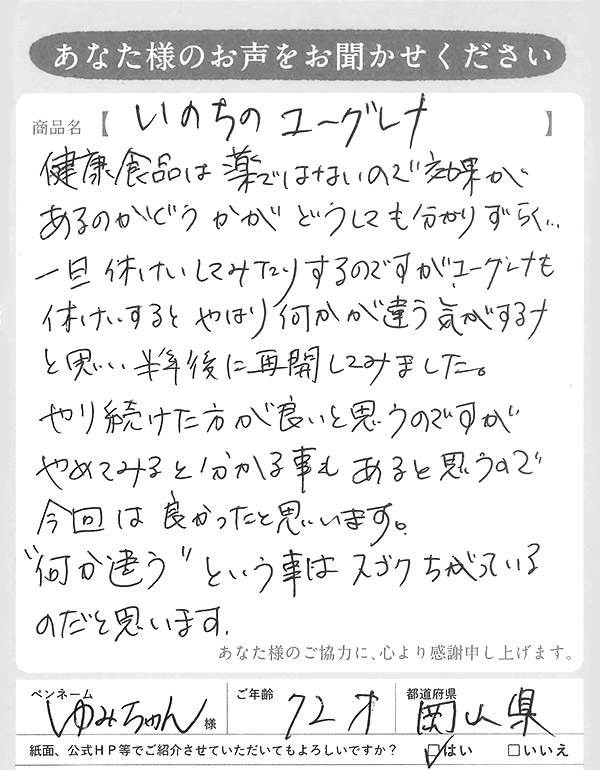 あなた様のお声をお聞かせください
商品名【 いのちのユーグレナ 】
健康食品は薬ではないので効果が
あるのかどうかが どうしても分かりずらく…
一旦休けいしてみたりするのですがユーグレナも
休けいすると やはり何かが違う気がするナ
と思い半年後に再開してみました。
やり続けた方が良いと思うのですが
やめてみると分かる事も あると思うので
今回は良かったと思います。
"何か違う"という事は スゴクちがっている
のだと思います。
あなた様のご協力に、心より感謝申し上げます。
ペンネーム ゆみちゃん 様 ご年齢 72才 都道府県 岡山県
紙面、公式HP等でご紹介させていただいてもよろしいですか? ☑はい □いいえ